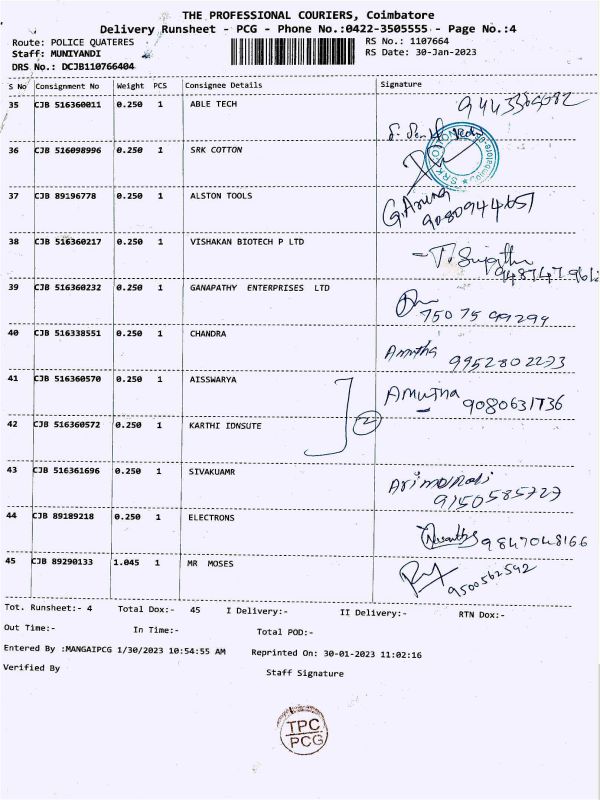 THE PROFESSIONAL COURIERS, Coimbatore
Delivery Runsheet - PCG - Phone No.:0422-3505555 - Page No.:4
Route: POLICE QUATERES
RS No.: 1107664
Staff: MUNIYANDI
RS Date: 30-Jan-2023
DRS No.: DCJB110766404
S No Consignment No Weight PCS Consignee Details Signature
35 CJB 516360011 0.250 1 ABLE TECH
36 CJB 516098996 0.250 1 SRK COTTON
37 CJB 89196778 0.250 1 ALSTON TOOLS G.Aruna
38 CJB 516360217 0.250 1 VISHAKAN BIOTECH P LTD
39 CJB 516360232 0.250 1 GANAPATHY ENTERPRISES LTD
7507599299
40 CJB 516338551 0.250 1 CHANDRA Amutha
9952802273
41 CJB 516360570 0.250 1 AISSWARYA Amutha
9080631736
42 CJB 516360572 0.250 1 KARTHI IDNSUTE 2
43 CJB 516361696 0.250 1 SIVAKUAMR
9150585727
44 CJB 89189218 0.250 1 ELECTRONS
9847048166
45 CJB 89290133 1.045 1 MR MOSES
9500562592
Tot. Runsheet:- 4 Total Dox:- 45 I Delivery:- II Delivery:- RTN Dox:-
Out Time:- In Time:- Total POD:-
Entered By :MANGAIPCG 1/30/2023 10:54:55 AM Reprinted On: 30-01-2023 11:02:16
Verified By Staff Signature
TPC
PCG